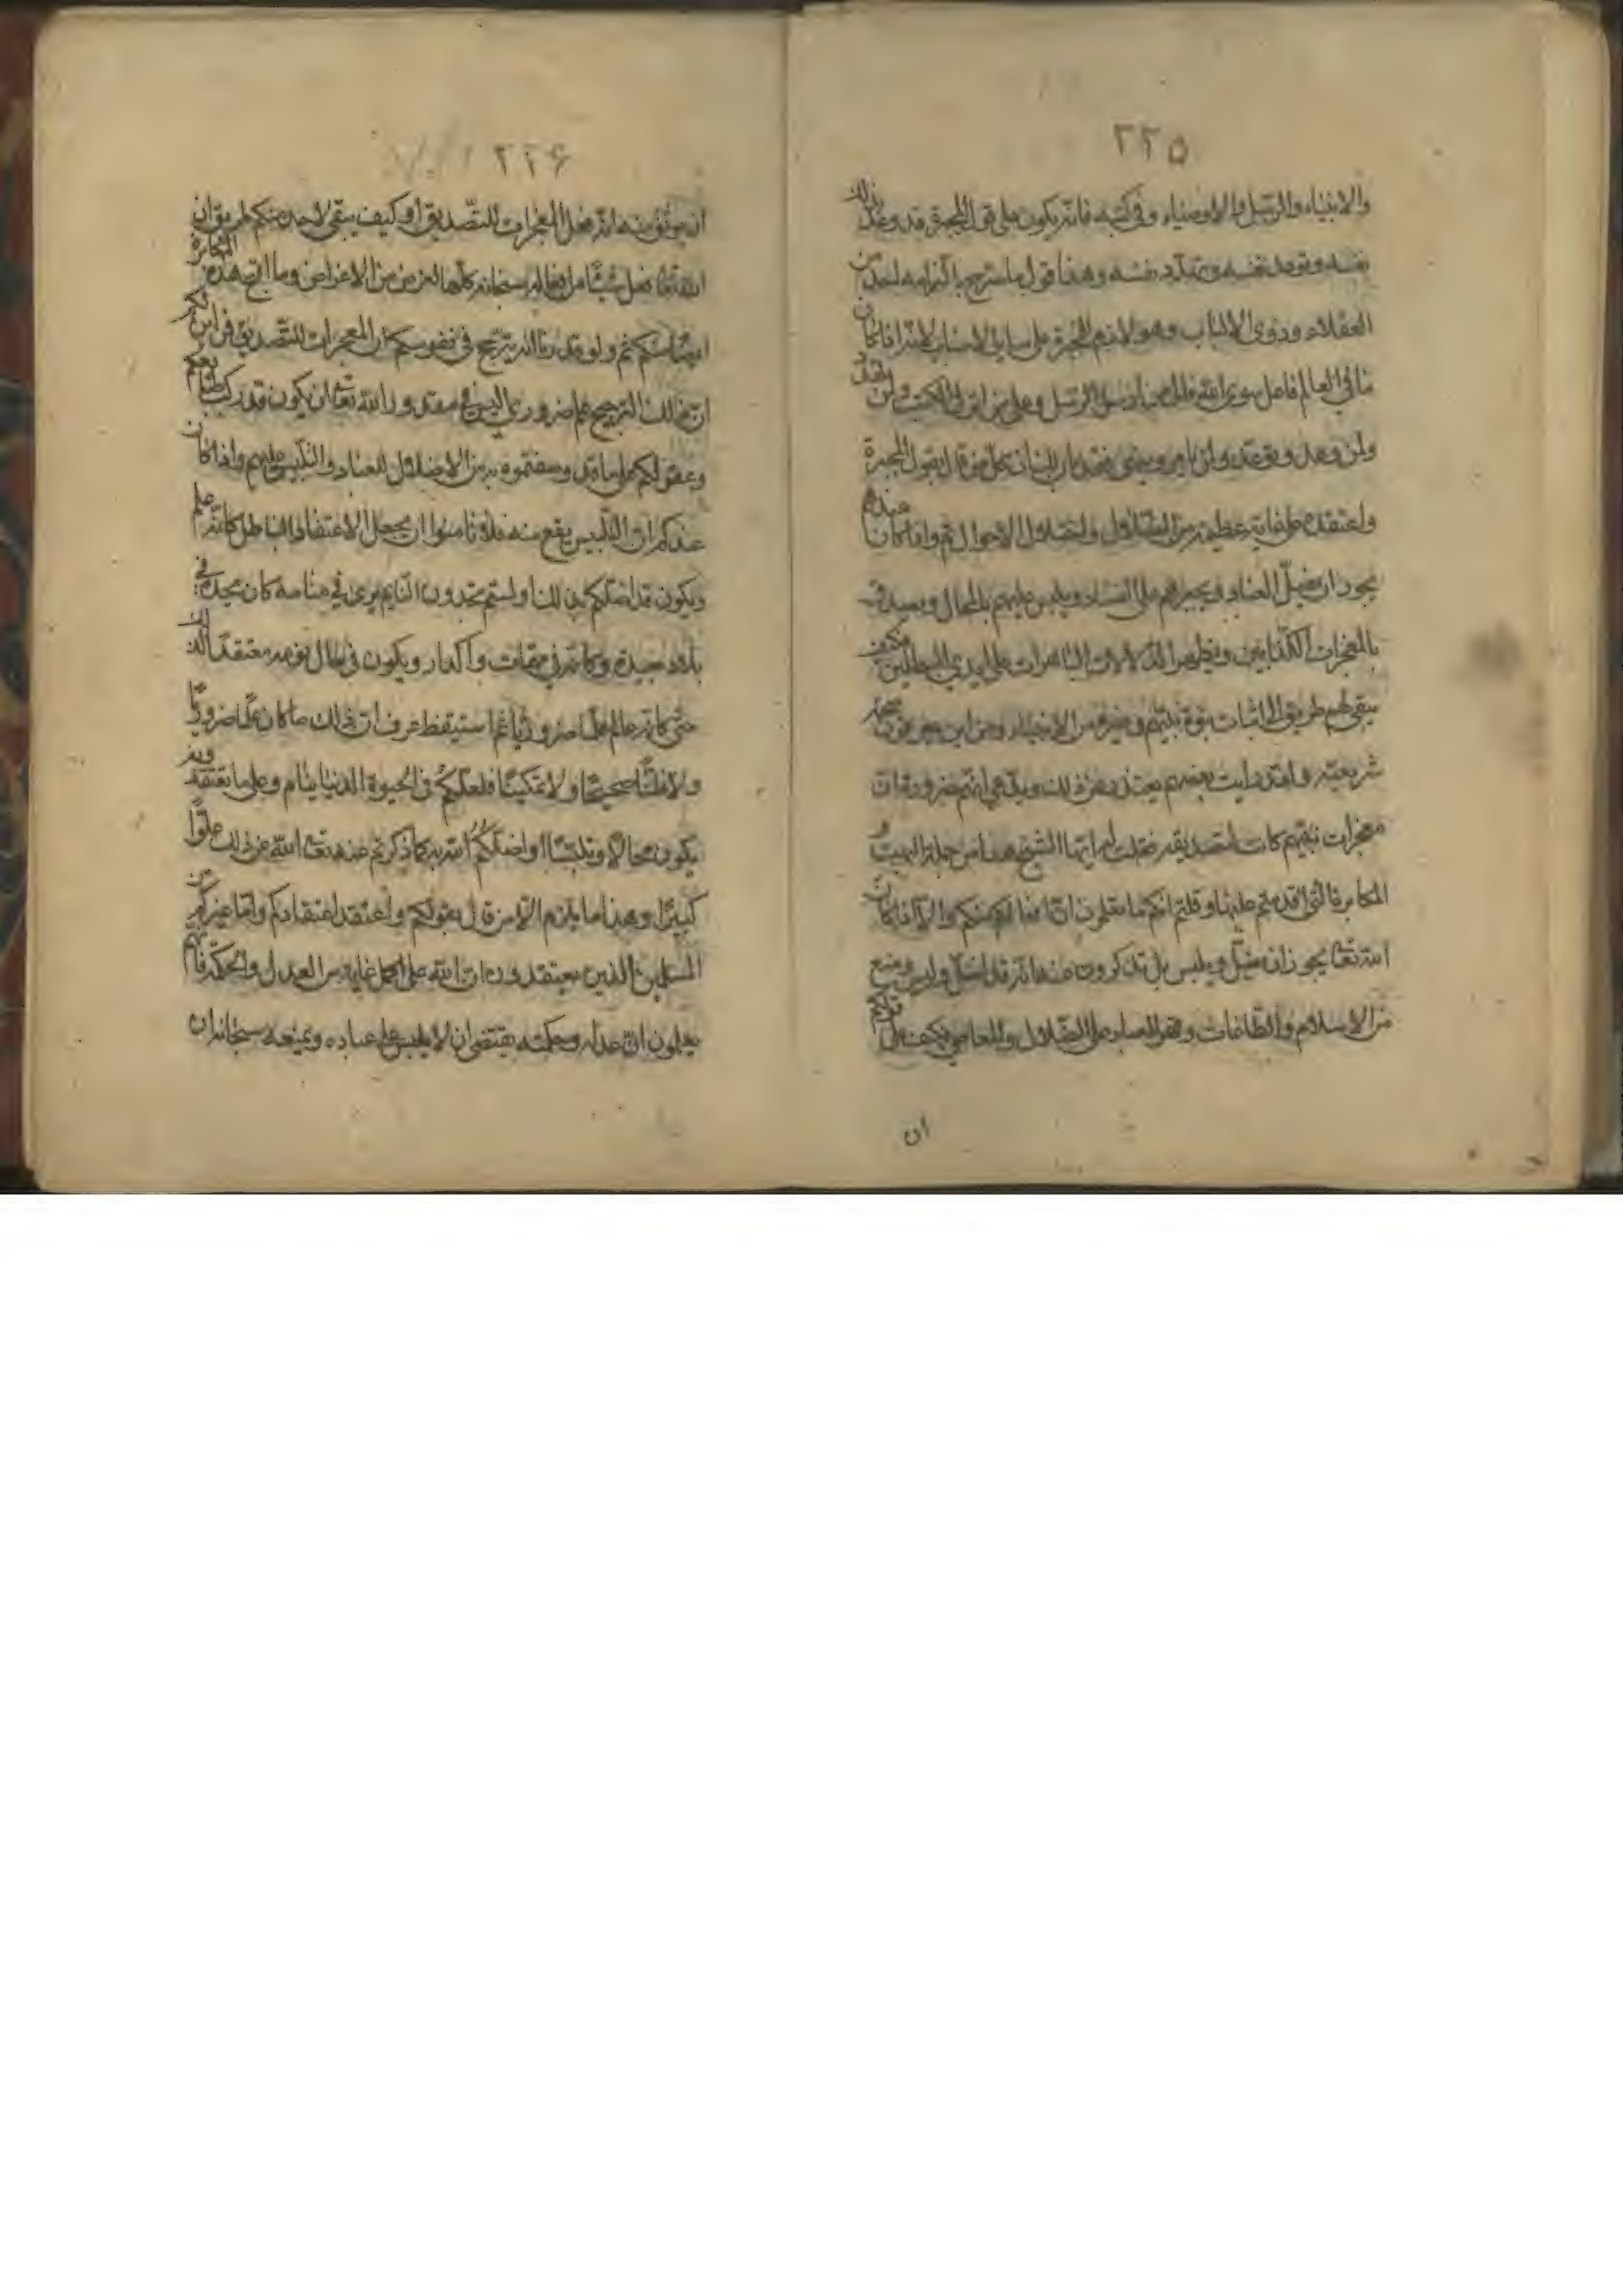 ٢٢٥
والانبياء والرسل والاوصياء وفى كتبه فانه يكون على قول المجبرة قد وعد بذلك
نفسه وتوعد نفسه وتهدد نفسه وهذا قول ما سترج بالتزامه احد من
العقلاء وذوى الالباب وهو لازم للمجبرة على سائر الاسباب لانه اذا كان
ما فى العالم فاعل سوى الله فالى من ارسل الرسل وعلى من انزل الكتب ولمن تهدد
ولمن وعد وتوعد ولمن يامر وينهى فقد بان لك ان كل من قال بقول المجبرة
واعتقده على غاية عظيمة من الضلال واختلال الاحوال ثم واذا كان عندهم
يجوز ان يضل العباد ويجبرهم على الفساد ويلبس عليهم بالمحال ويصدق
بالمعجزات الكذابين ويظهر الدلالات الباهرات على ايدي المبطلين فكيف
يبقى لهم طريق الى اثبات نبوة نبيهم وغيره من الانبياء ومن اين يعرفون صحة
شريعته ولقد رايت بعضهم يعتذر عن ذلك ويدعي انهم ضرورة ان
معجزات نبيهم كانت لتصديقه فقلت له ايها الشيخ هذا من جملة البهت و
المكابرة التى اقدمتم عليها وقلتم انكم ما تعلمون ان افعالكم منكم والا اذا كان
الله تعالى يجوز ان يضل ويلبس بل تذكرون عنه انه قد اضل ولبس ومنع
من الاسلام والطاعات وقهر العباد على الضلال والمعاصي فكيف قدرتم على
ان
٢٢٦
ان يوثق منه انه فعل المعجزات للتصديق او كيف يبقى لاحد منكم طريق ان
الله تعالى فعل شيئا من افعاله سبحانه كلها لغرض من الاغراض وما اقبح هذه المكابرة
ايضا منكم ثم ولو قدرنا انه يترجح فى نفوسكم ان المعجزات للتصديق فمن اين لكم
ان ذلك الترجيح علم ضروري اليس فى مقدور الله تعالى ان يكون قدر كب طباعكم
وعقولكم على ما قد وصفتموه به من الاضلال للعباد والتلبيس عليهم واذا كان
عندكم ان التلبيس يقع منه فلا تامنوا ان يجعل الاعتقاد الباطل كانه علم
ويكون قد اضلكم بذلك اولستم تجدون النايم يرى فى منامه كان يجده فى
بلاد بعيدة وكانه فى مهمات واكدار ويكون فى حال نومه معتقدا لذلك
حتى كانه عالم علما ضروريا فاذا استيقظ عرف ان ذلك ما كان علما ضروريا
ولا ظنا صحيحا ولا تمكينا فلعلكم فى الحيوة الدنيا ينام وعلى ما تعتقدونه
يكون محالا وتلبيسا واضلكم الله به كما ذكرتم عنه تعالى الله عن ذلك علوا
كبيرا وهذا ما يلزم الا من قال بقولكم واعتقد اعتقادكم واما غيركم من
المسلمين الذين يعتقدون ان الله على اكمل غاية من العدل والحكمة فانهم
يعلمون ان عدله وحكمته يقتضى ان لا يلبس على عباده ويمنعه سبحانه ان